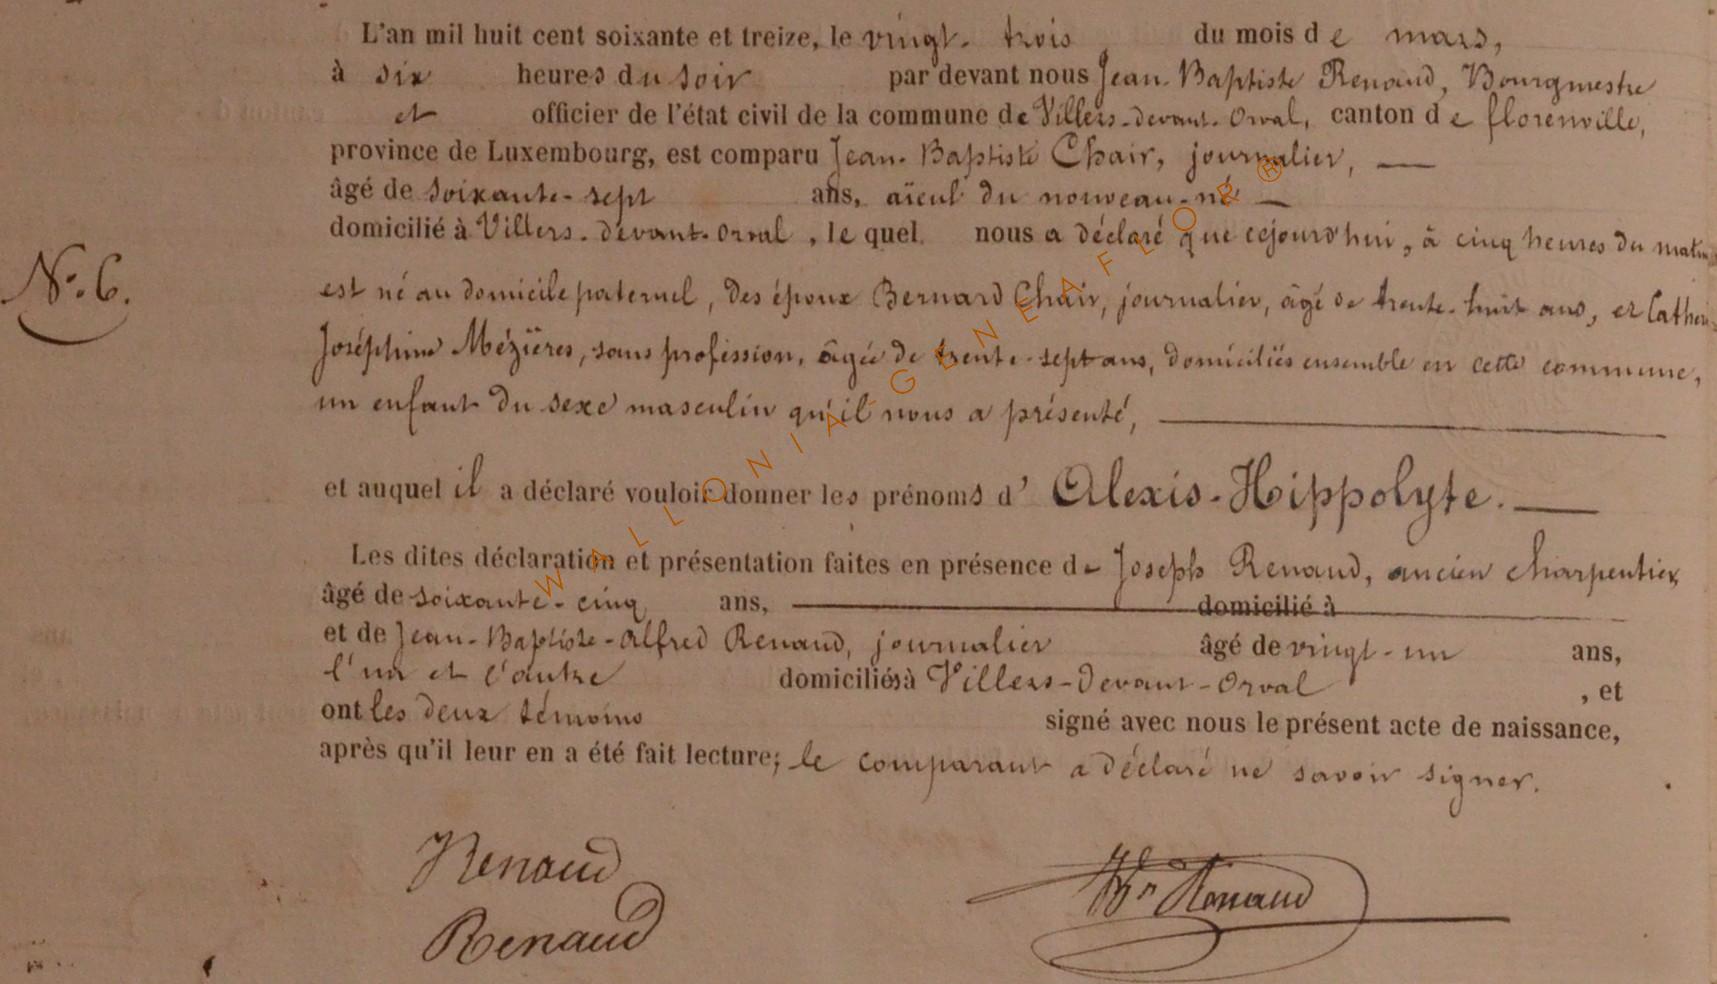 L'an mil huit cent soixante et treize, le vingt-trois du mois de mars,
à six heures du soir par devant nous Jean-Baptiste Renaud, Bourgmestre
et officier de l'état civil de la commune de Villers-devant-Orval, canton de florenville,
province de Luxembourg, est comparu Jean-Baptiste Chair, journalier,
âgé de soixante-sept ans, aïeul du nouveau-né
domicilié à Villers-devant-Orval, le quel nous a déclaré que cejourd'hui, à cinq heures du matin
N.o 6.
est né au domicile paternel, des époux Bernard Chair, journalier, âgé de trente-huit ans, et Catherine
Joséphine Mézières, sans profession, âgée de trente-sept ans, domiciliés ensemble en cette commune,
un enfant du sexe masculin qu'il nous a présenté,
et auquel il a déclaré vouloir donner les prénoms d'Alexis-Hippolyte.
Les dites déclaration et présentation faites en présence de Joseph Renaud, ancien charpentier,
âgé de soixante-cinq ans, domicilié à
et de Jean-Baptiste-Alfred Renaud, journalier âgé de vingt-un ans,
l'un et l'autre domiciliés à Villers-devant-Orval, et
ont les deux témoins signé avec nous le présent acte de naissance,
après qu'il leur en a été fait lecture; le comparant a déclaré ne savoir signer.
Renaud
Renaud
Renaud
WALLONIA-GENEAFLOR®